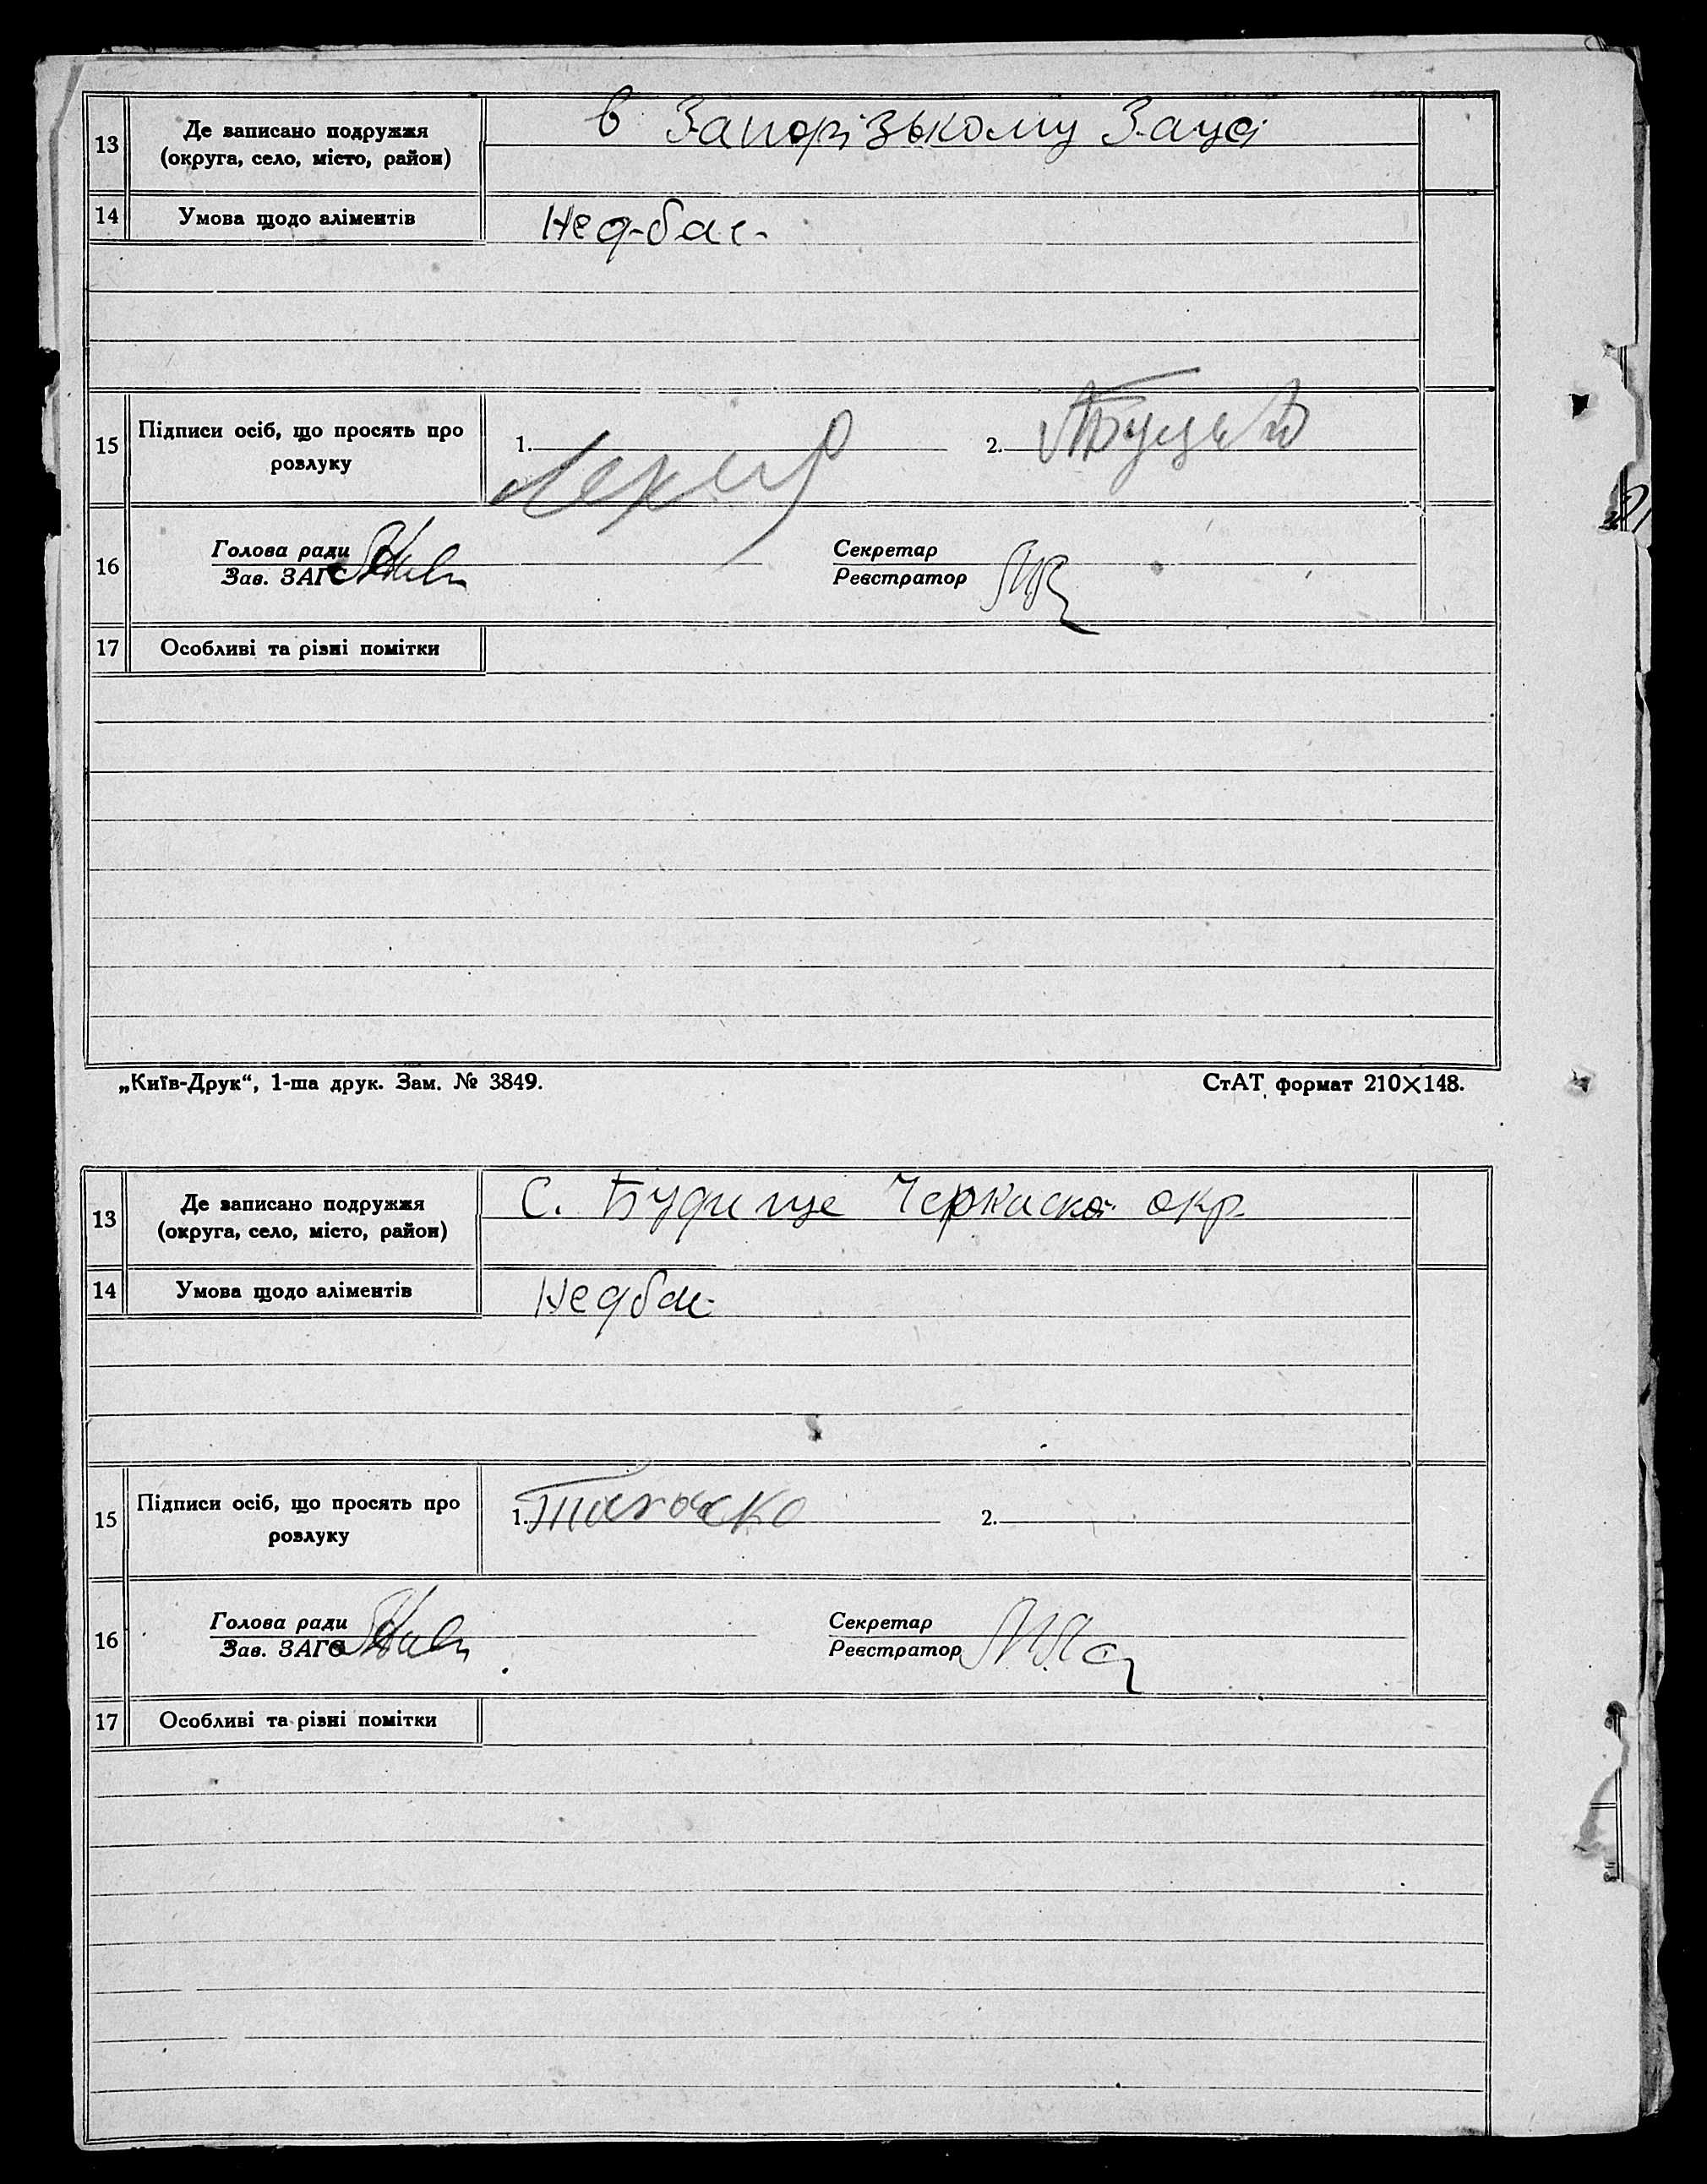 13 Де записано подружжя
(округа, село, місто, район)
в Запорізькому Заусі
14 Умова щодо аліментів
Нед-бає-
15 Підписи осіб, що просять про
розлуку
1.
2.
16 Голова ради
Зав. ЗАГС
Секретар
Реєстратор
17 Особливі та різні помітки
„Київ-Друк“, 1-ша друк. Зам. № 3849.
СтАТ формат 210×148.
13 Де записано подружжя
(округа, село, місто, район)
С. Будище Черкаско окр.
14 Умова щодо аліментів
15 Підписи осіб, що просять про
розлуку
1.
2.
16 Голова ради
Зав. ЗАГС
Секретар
Реєстратор
17 Особливі та різні помітки